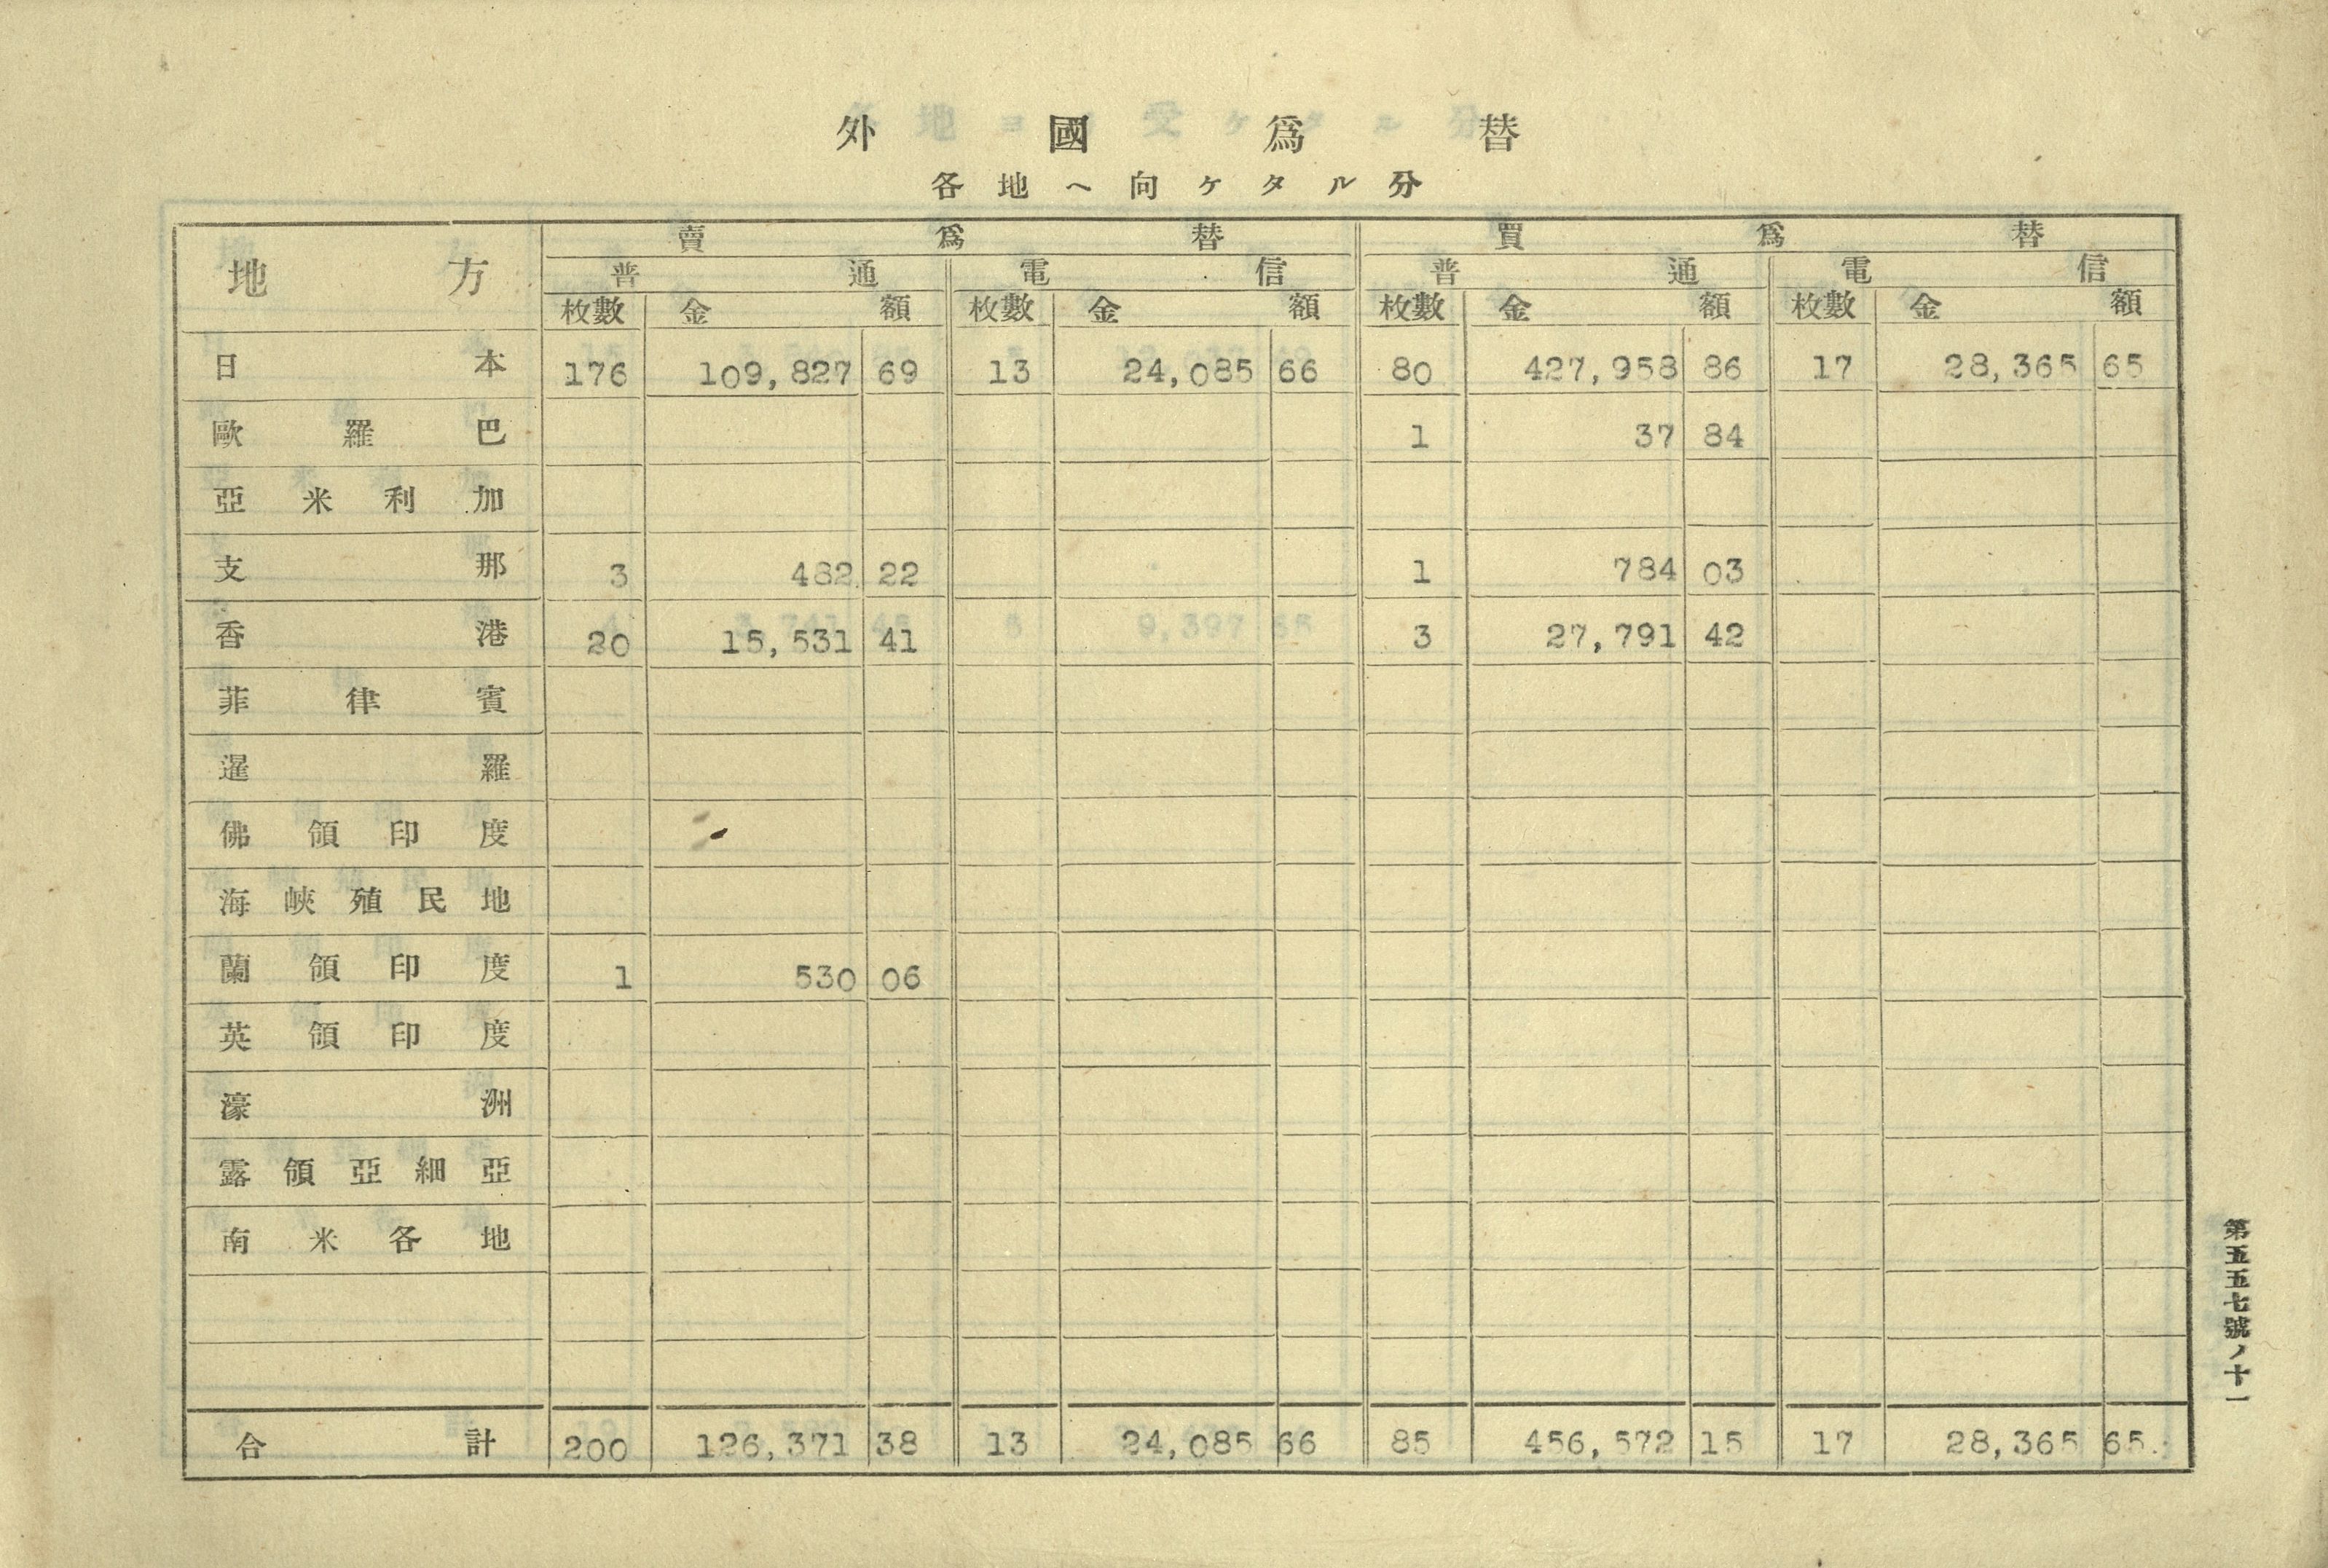 外國爲替
各地ヘ向ケタル分
地方 賣爲替 買爲替
普通 電信 普通 電信
枚數 金額 枚數 金額 枚數 金額 枚數 金額
日本 176 109,827 69 13 24,085 66 80 427,958 86 17 28,365 65
歐羅巴 1 37 84
亞米利加
支那 3 482 22 1 784 03
香港 20 15,531 41 3 27,791 42
菲律賓
暹羅
佛領印度
海峽殖民地
蘭領印度 1 530 06
英領印度
濠洲
露領亞細亞
南米各地
合計 200 126,371 38 13 24,085 66 85 456,572 15 17 28,365 65.
第五五七號ノ十一